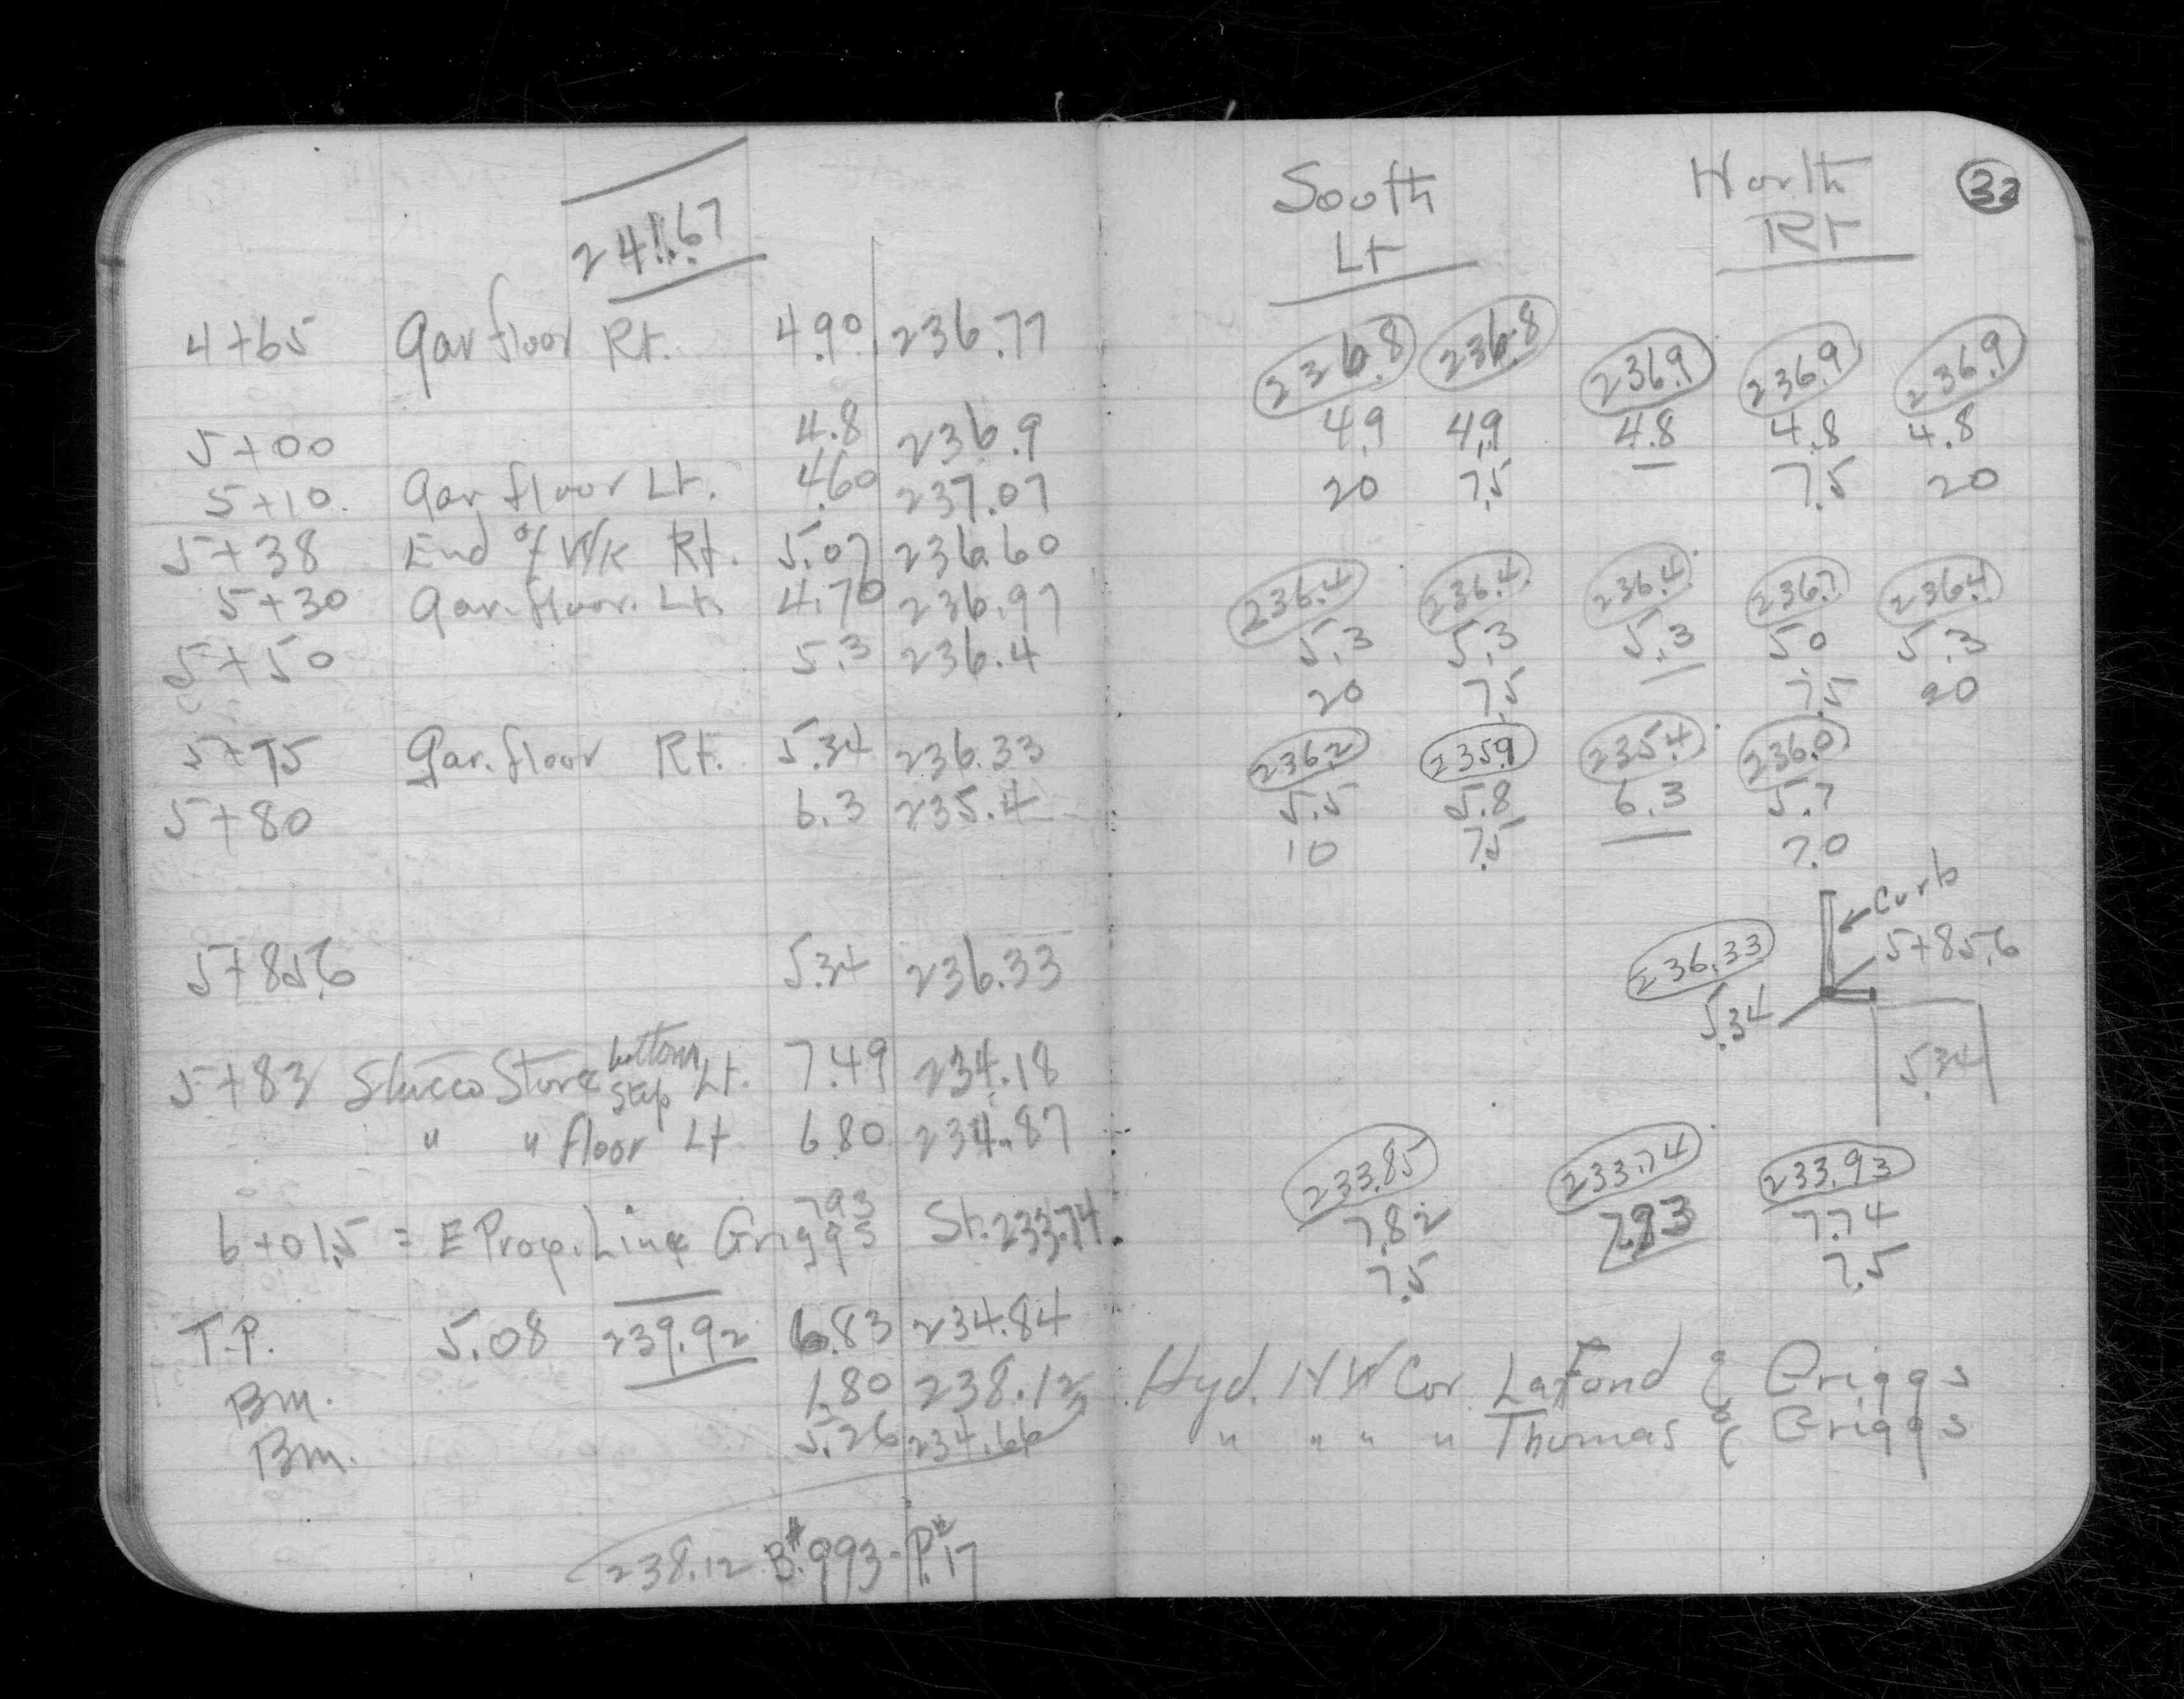 241.67
4+65 Gar floor Rt. 4.90 236.77
5+00 4.8 236.9
5+10. Gar. floor Lt. 4.60 237.07
5+38 End of Wk Rt. 5.07 236.60
5+30 Gar. floor. Lt. 4.70 236.97
5+50 5.3 236.4
5+75 Gar. floor Rt. 5.34 236.33
5+80 6.3 235.4
5+85.6 5.34 236.33
5+83 Stucco Store bottom step Lt. 7.49 234.18
" " floor Lt 6.80 234.87
7.93
6+01.5 = E Prop. Line Griggs St. 233.74.
T.P. 5.08 239.92 6.83 234.84
Bm. 1.80 238.12
Bm. 5.26 234.66
238.12 B.#993-P.#17
South North 32
Lt Rt
236.8 236.8 236.9 236.9 236.9
4.9 4.9 4.8 4.8 4.8
20 7.5 — 7.5 20
236.4 236.4 236.4 236.7 236.4
5.3 5.3 5.3 5.0 5.3
20 7.5 7.5 20
236.2 235.9 235.4 236.0
5.5 5.8 6.3 5.7
10 7.5 7.0
Curb
236.33 5+85.6
5.34
5.34
233.85 233.74 233.93
7.82 7.93 7.74
7.5 7.5
Hyd. NW Cor. LaFond & Griggs
" " " " Thomas & Griggs